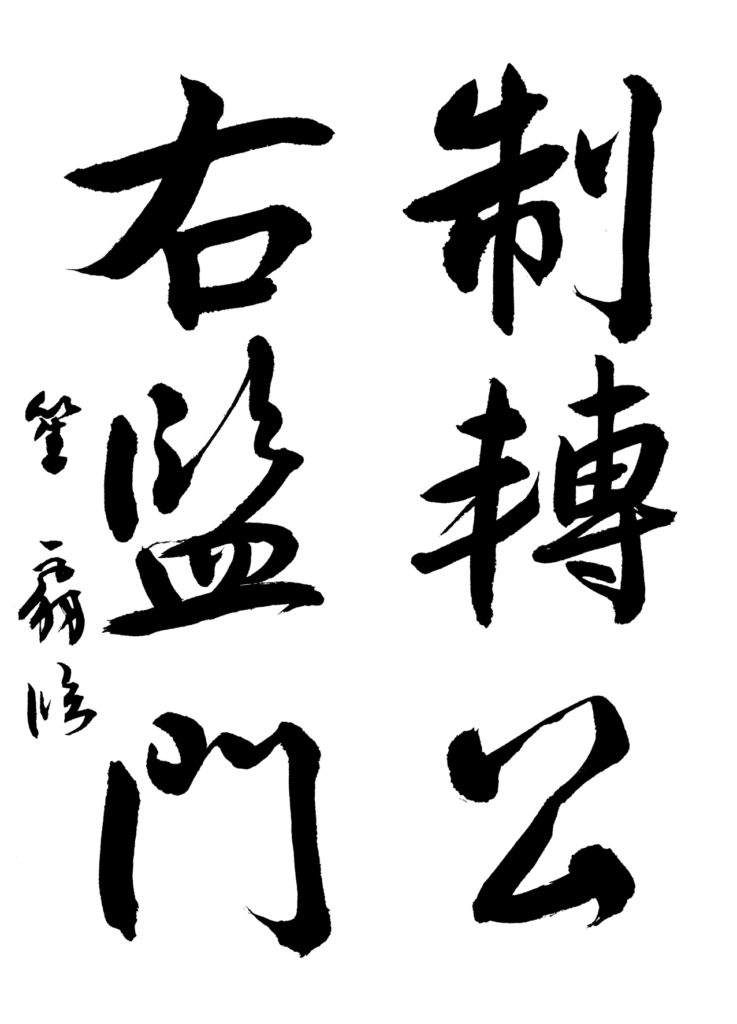 制轉公
右監門
臨